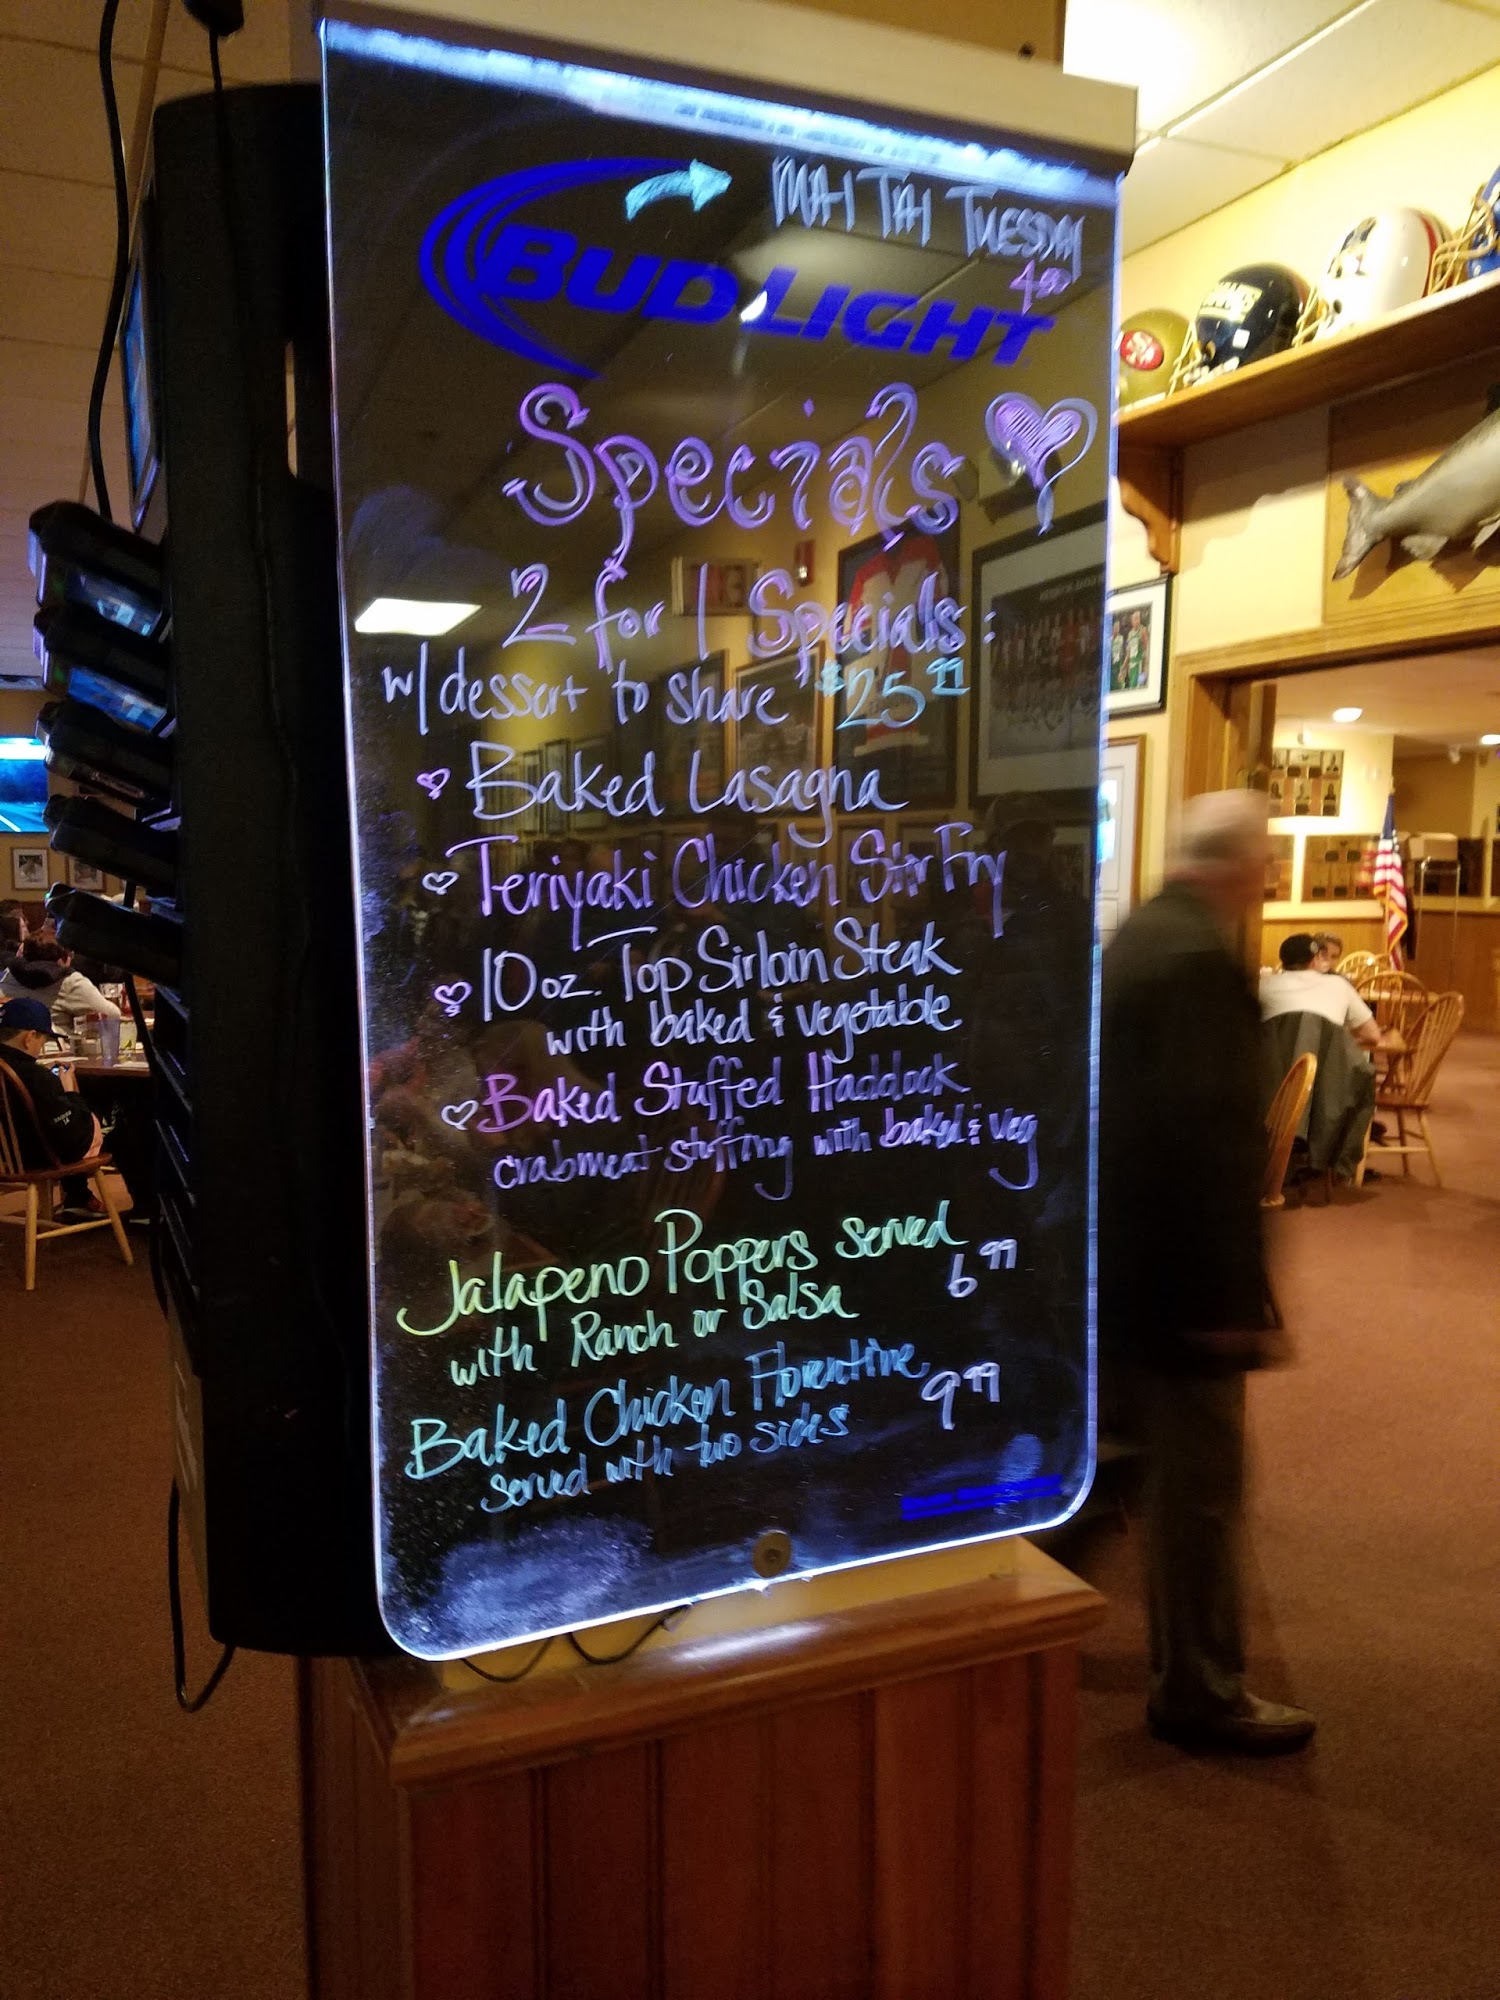 MAI TAI TUESDAY
4.00
BUD LIGHT
Specials
2 for 1 Specials:
w/ dessert to share $25.99
Baked Lasagna
Teriyaki Chicken Stir Fry
10 oz. Top Sirloin Steak
with baked & vegetable
Baked Stuffed Haddock
crabmeat stuffing with baked & veg
Jalapeno Poppers served 6.99
with Ranch or Salsa
Baked Chicken Florentine 9.99
served with two sides